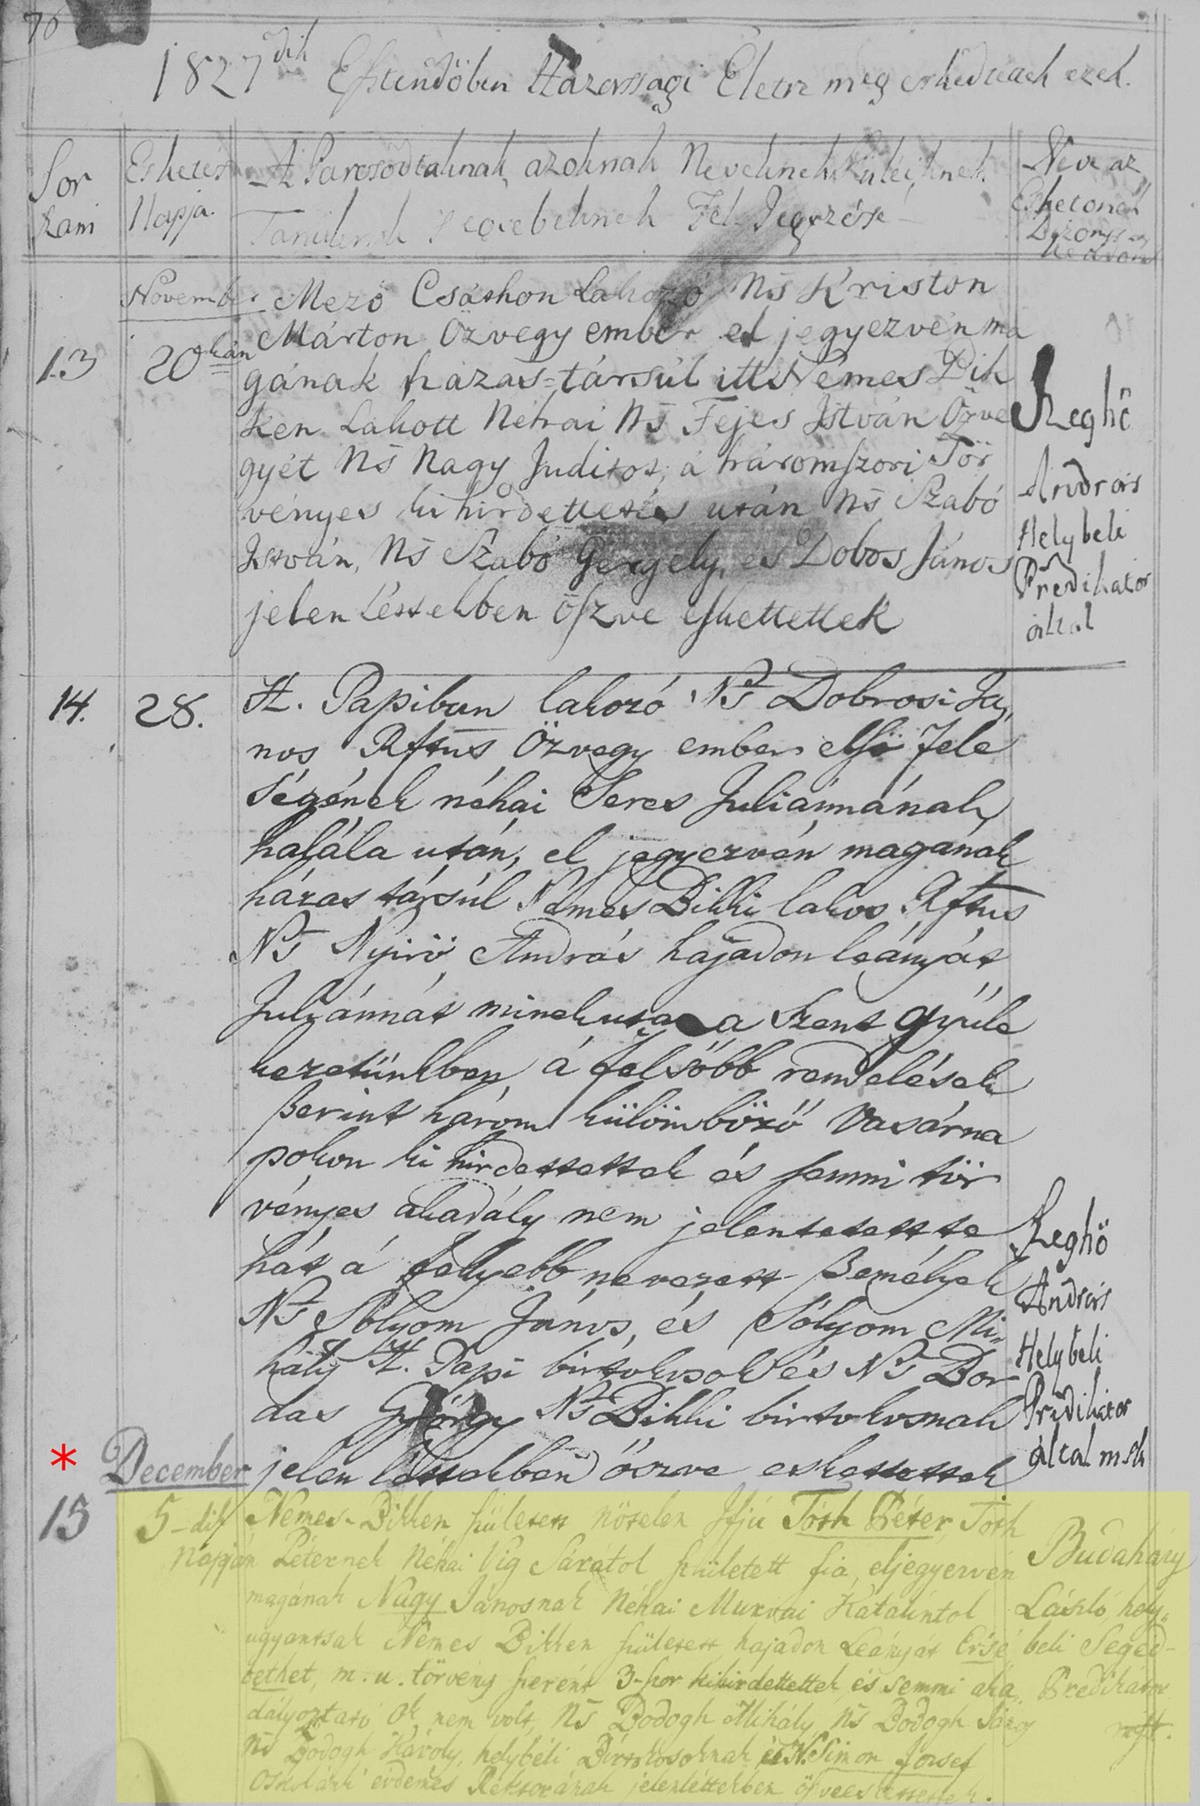 76
1827dik Esztendőben Házassagi Életre meg eskedtek ezek.
Sor Szam
Esketés Napja.
A Párosodtaknak, azoknak Neveknek, Szüleiknek
Tanuknak Fel Jegyzése
Neve az Esketőnek
November
Mező Csáthon Lakozó Ns Kriston
Márton Özvegy ember el jegyezvén ma
13
20dikán
gának házas=társúl itt Nemes Bik
ken Lakott Néhai Ns Fejes István Özve
gyét Ns Nagy Juditot, á háromszori Tör
vényes ki hirdettetés után Ns Szabó
István, Ns Szabó Gergely, és Dobos János
jelen létekben öszve eskettettek
Szeghő
András
Helybeli
Prédikátor
által
14.
28.
H. Papiban lakozó Ns Dobrosi Já,,
nos Rftus Özvegy ember első Fele
ségének néhai Seres Juliánnának
halála után, el jegyezvén magának
házas társúl Nemes Bikki lakos Rftus
Ns Nyirő András hajadon leányát
Juliánnát minekutá a Szent Gyüle
kezetünkben á felsőbb rendelések
szerint három külömböző Vasárna
pokon ki hirdettettek és semmi tör
vényes akadály nem jelentetett te
hát á fellyebb nevezett személyek
Ns Sólyom János, és Sólyom Mi,,
hály H. Papi birtokosok és Ns Bor
dás György Ns Bikki birtokosnak
jelen létekben öszve eskettettek
Szeghő
András
Helybeli
Prédikátor
által msk
*
December
15
5-dik
Napján
Nemes-Bikken született nőtelen Ifjú Tóth Péter Tóth
Péternek Néhai Vig Sárától született fia, eljegyezvén
magának Nagy Jánosnak Néhai Murvai Kátalintol
ugyantsak Nemes Bikken született hajadon Leányát Ersé
bethet, m. u. törvény szerént 3-szor kihirdettettek, és semmi aka,,
dályoztató Ok nem volt, Ns Bodogh Mihály, Ns Bodogh
Ns Bodogh Károly, helybéli Birtokosoknak és N. Simon Josef
Oskolánk érdemes Rektorának jelenléttekben öszveeskettettek.
Budaházy
László hely,,
beli Segéd-
Prédikátor